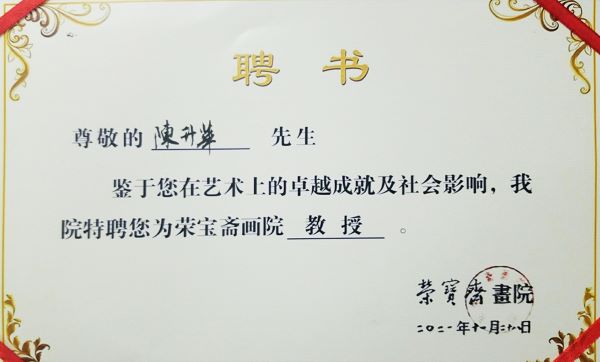 聘书
尊敬的 陳升華 先生
鉴于您在艺术上的卓越成就及社会影响，我
院特聘您为荣宝斋画院 教授 。
榮寶齋畫院
二〇二一年十一月二十八日